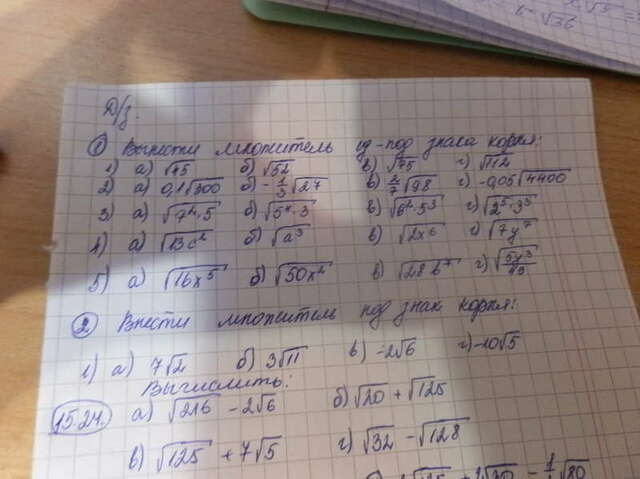 √36
Д/з.
① Вынести множитель из-под знака корня:
1) а) √45 б) √52 в) √75 г) √112
2) а) 0,1√300 б) -1/3√27 в) 2/7√98 г) -0,05√4400
3) а) √(7⁴·5) б) √(5⁴·3) в) √(6²·5³) г) √(2⁵·3³)
4) а) √(13c²) б) √a³ в) √(2x⁶) г) √(7y⁷)
5) а) √(16x⁵) б) √(50x²) в) √(28b⁷) г) √(5y³/49)
② Внести множитель под знак корня:
1) а) 7√2 б) 3√11 в) -2√6 г) -10√5
Вычислить:
15.24. а) √216 - 2√6 б) √20 + √125
в) √125 + 7√5 г) √32 - √128
√80